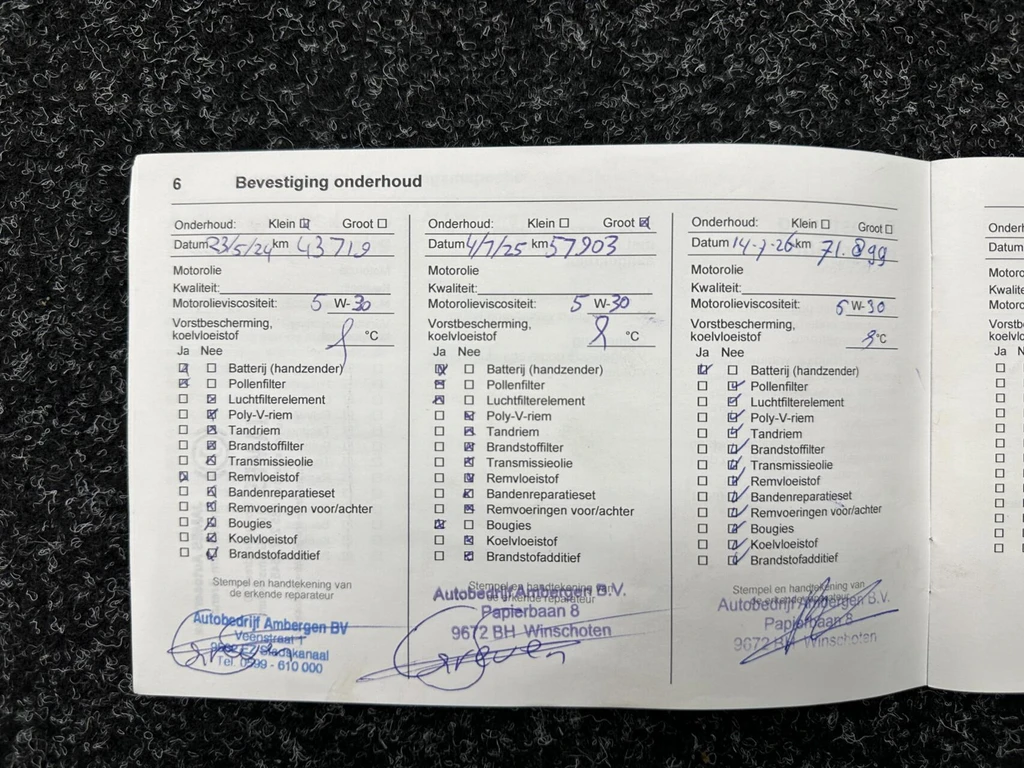 6 Bevestiging onderhoud
Onderhoud: Klein Groot
Datum 23/5/24 km 43719
Motorolie
Kwaliteit:
Motorolieviscositeit: 5 W-30
Vorstbescherming,
koelvloeistof °C
Ja Nee
Batterij (handzender)
Pollenfilter
Luchtfilterelement
Poly-V-riem
Tandriem
Brandstoffilter
Transmissieolie
Remvloeistof
Bandenreparatieset
Remvoeringen voor/achter
Bougies
Koelvloeistof
Brandstofadditief
Stempel en handtekening van
de erkende reparateur
Autobedrijf Ambergen BV
Veenstraat 1
Stadskanaal
Tel. 0599 - 610 000
Onderhoud: Klein Groot
Datum 4/7/25 km 57903
Motorolie
Kwaliteit:
Motorolieviscositeit: 5 W-30
Vorstbescherming,
koelvloeistof °C
Ja Nee
Batterij (handzender)
Pollenfilter
Luchtfilterelement
Poly-V-riem
Tandriem
Brandstoffilter
Transmissieolie
Remvloeistof
Bandenreparatieset
Remvoeringen voor/achter
Bougies
Koelvloeistof
Brandstofadditief
Stempel en handtekening van
de erkende reparateur
Autobedrijf Ambergen B.V.
Papierbaan 8
9672 BH Winschoten
Onderhoud: Klein Groot
Datum 14-7-26 km 71.899
Motorolie
Kwaliteit:
Motorolieviscositeit: 5 W-30
Vorstbescherming,
koelvloeistof °C
Ja Nee
Batterij (handzender)
Pollenfilter
Luchtfilterelement
Poly-V-riem
Tandriem
Brandstoffilter
Transmissieolie
Remvloeistof
Bandenreparatieset
Remvoeringen voor/achter
Bougies
Koelvloeistof
Brandstofadditief
Stempel en handtekening van
de erkende reparateur
Autobedrijf Ambergen B.V.
Papierbaan 8
9672 BH Winschoten